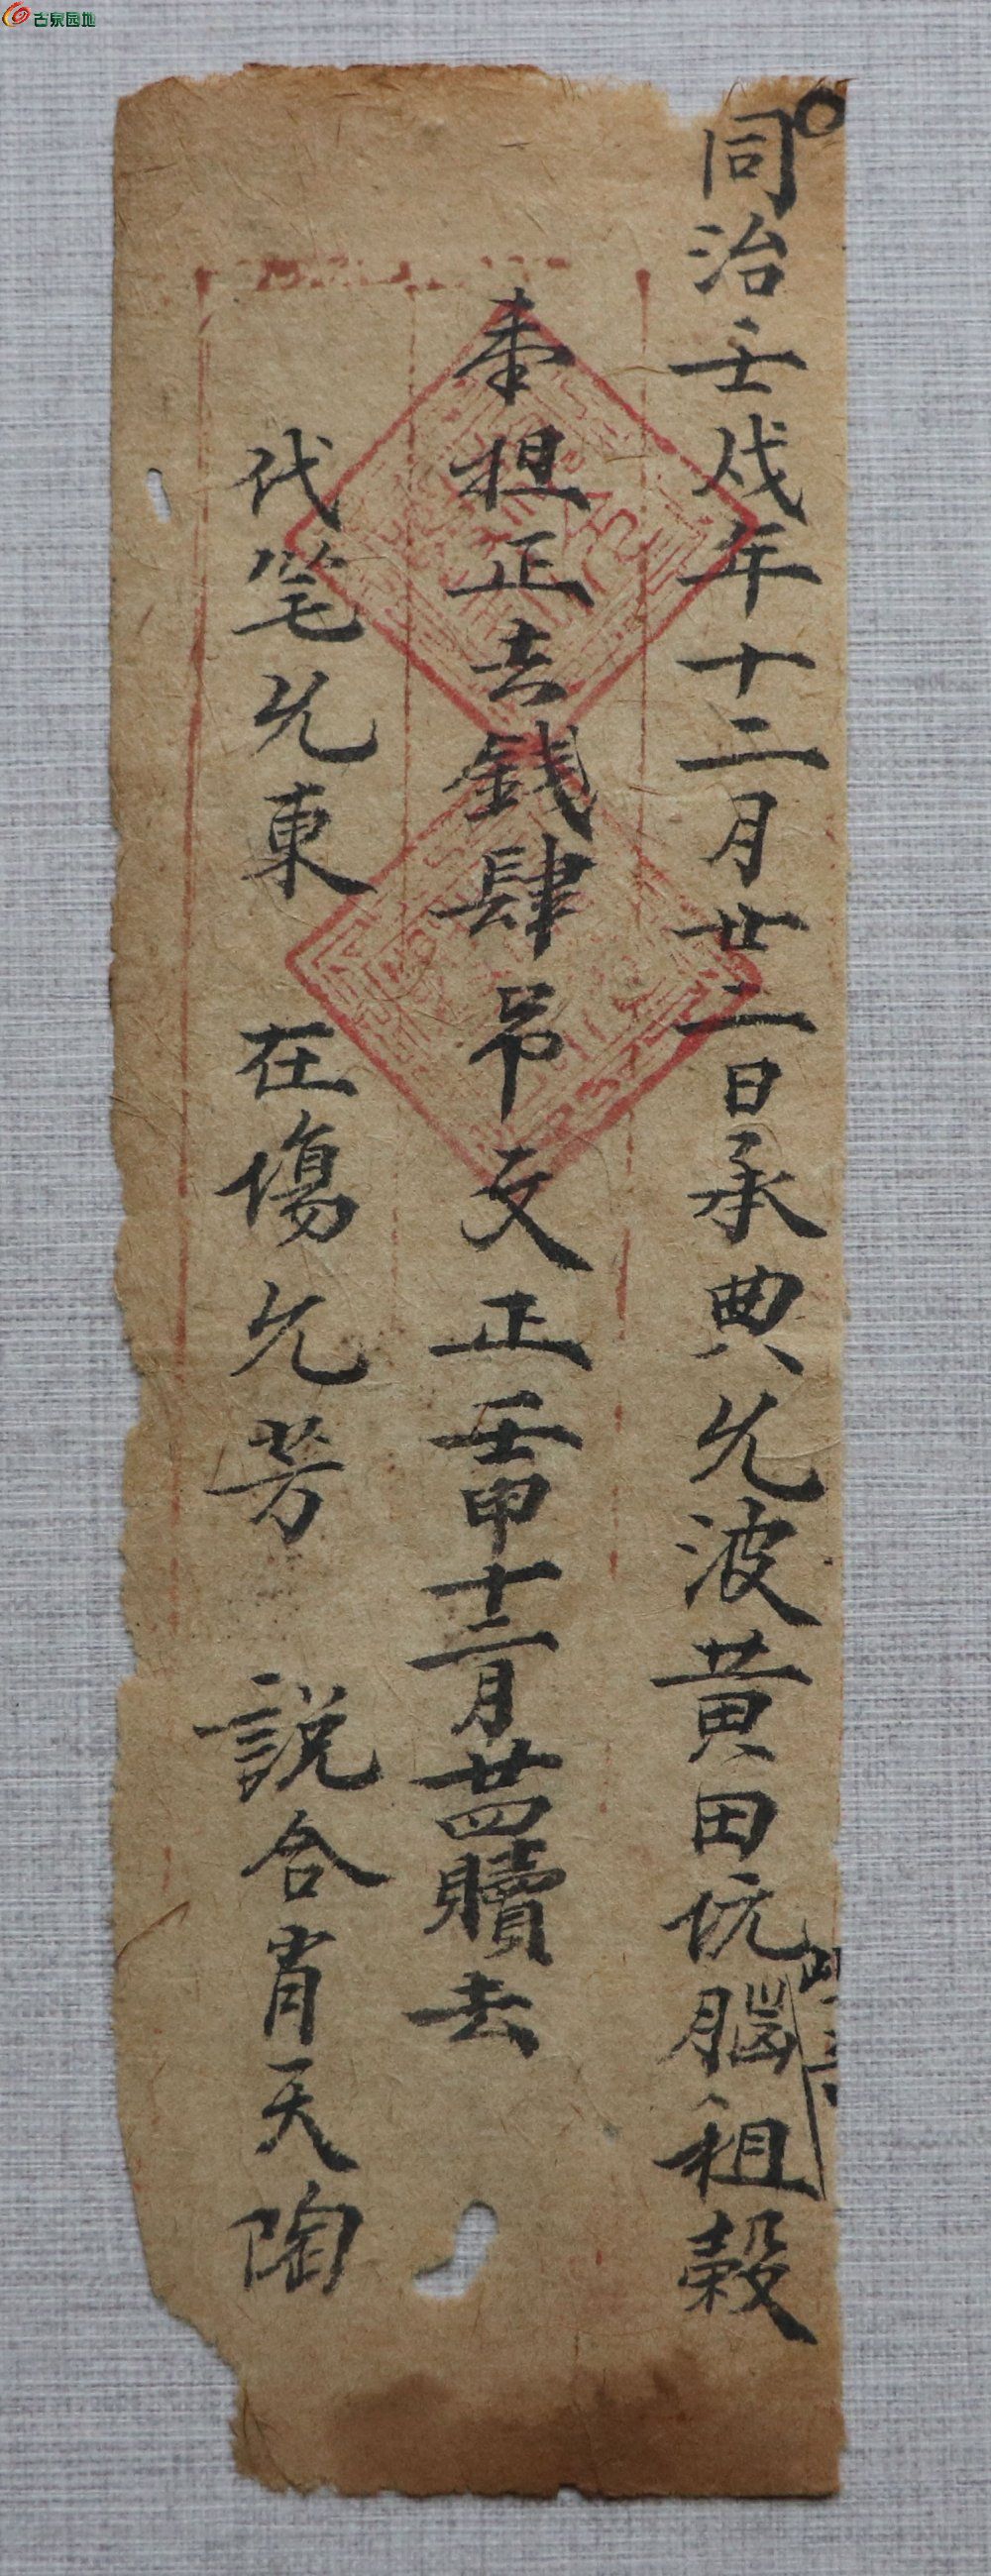 古泉园地
同治壬戌年十二月廿二日承典允波黄田坑腦租穀
担正去錢肆吊文正壬申十二月廿四贖去
代笔允東 在塲允芳 説合肖天陶